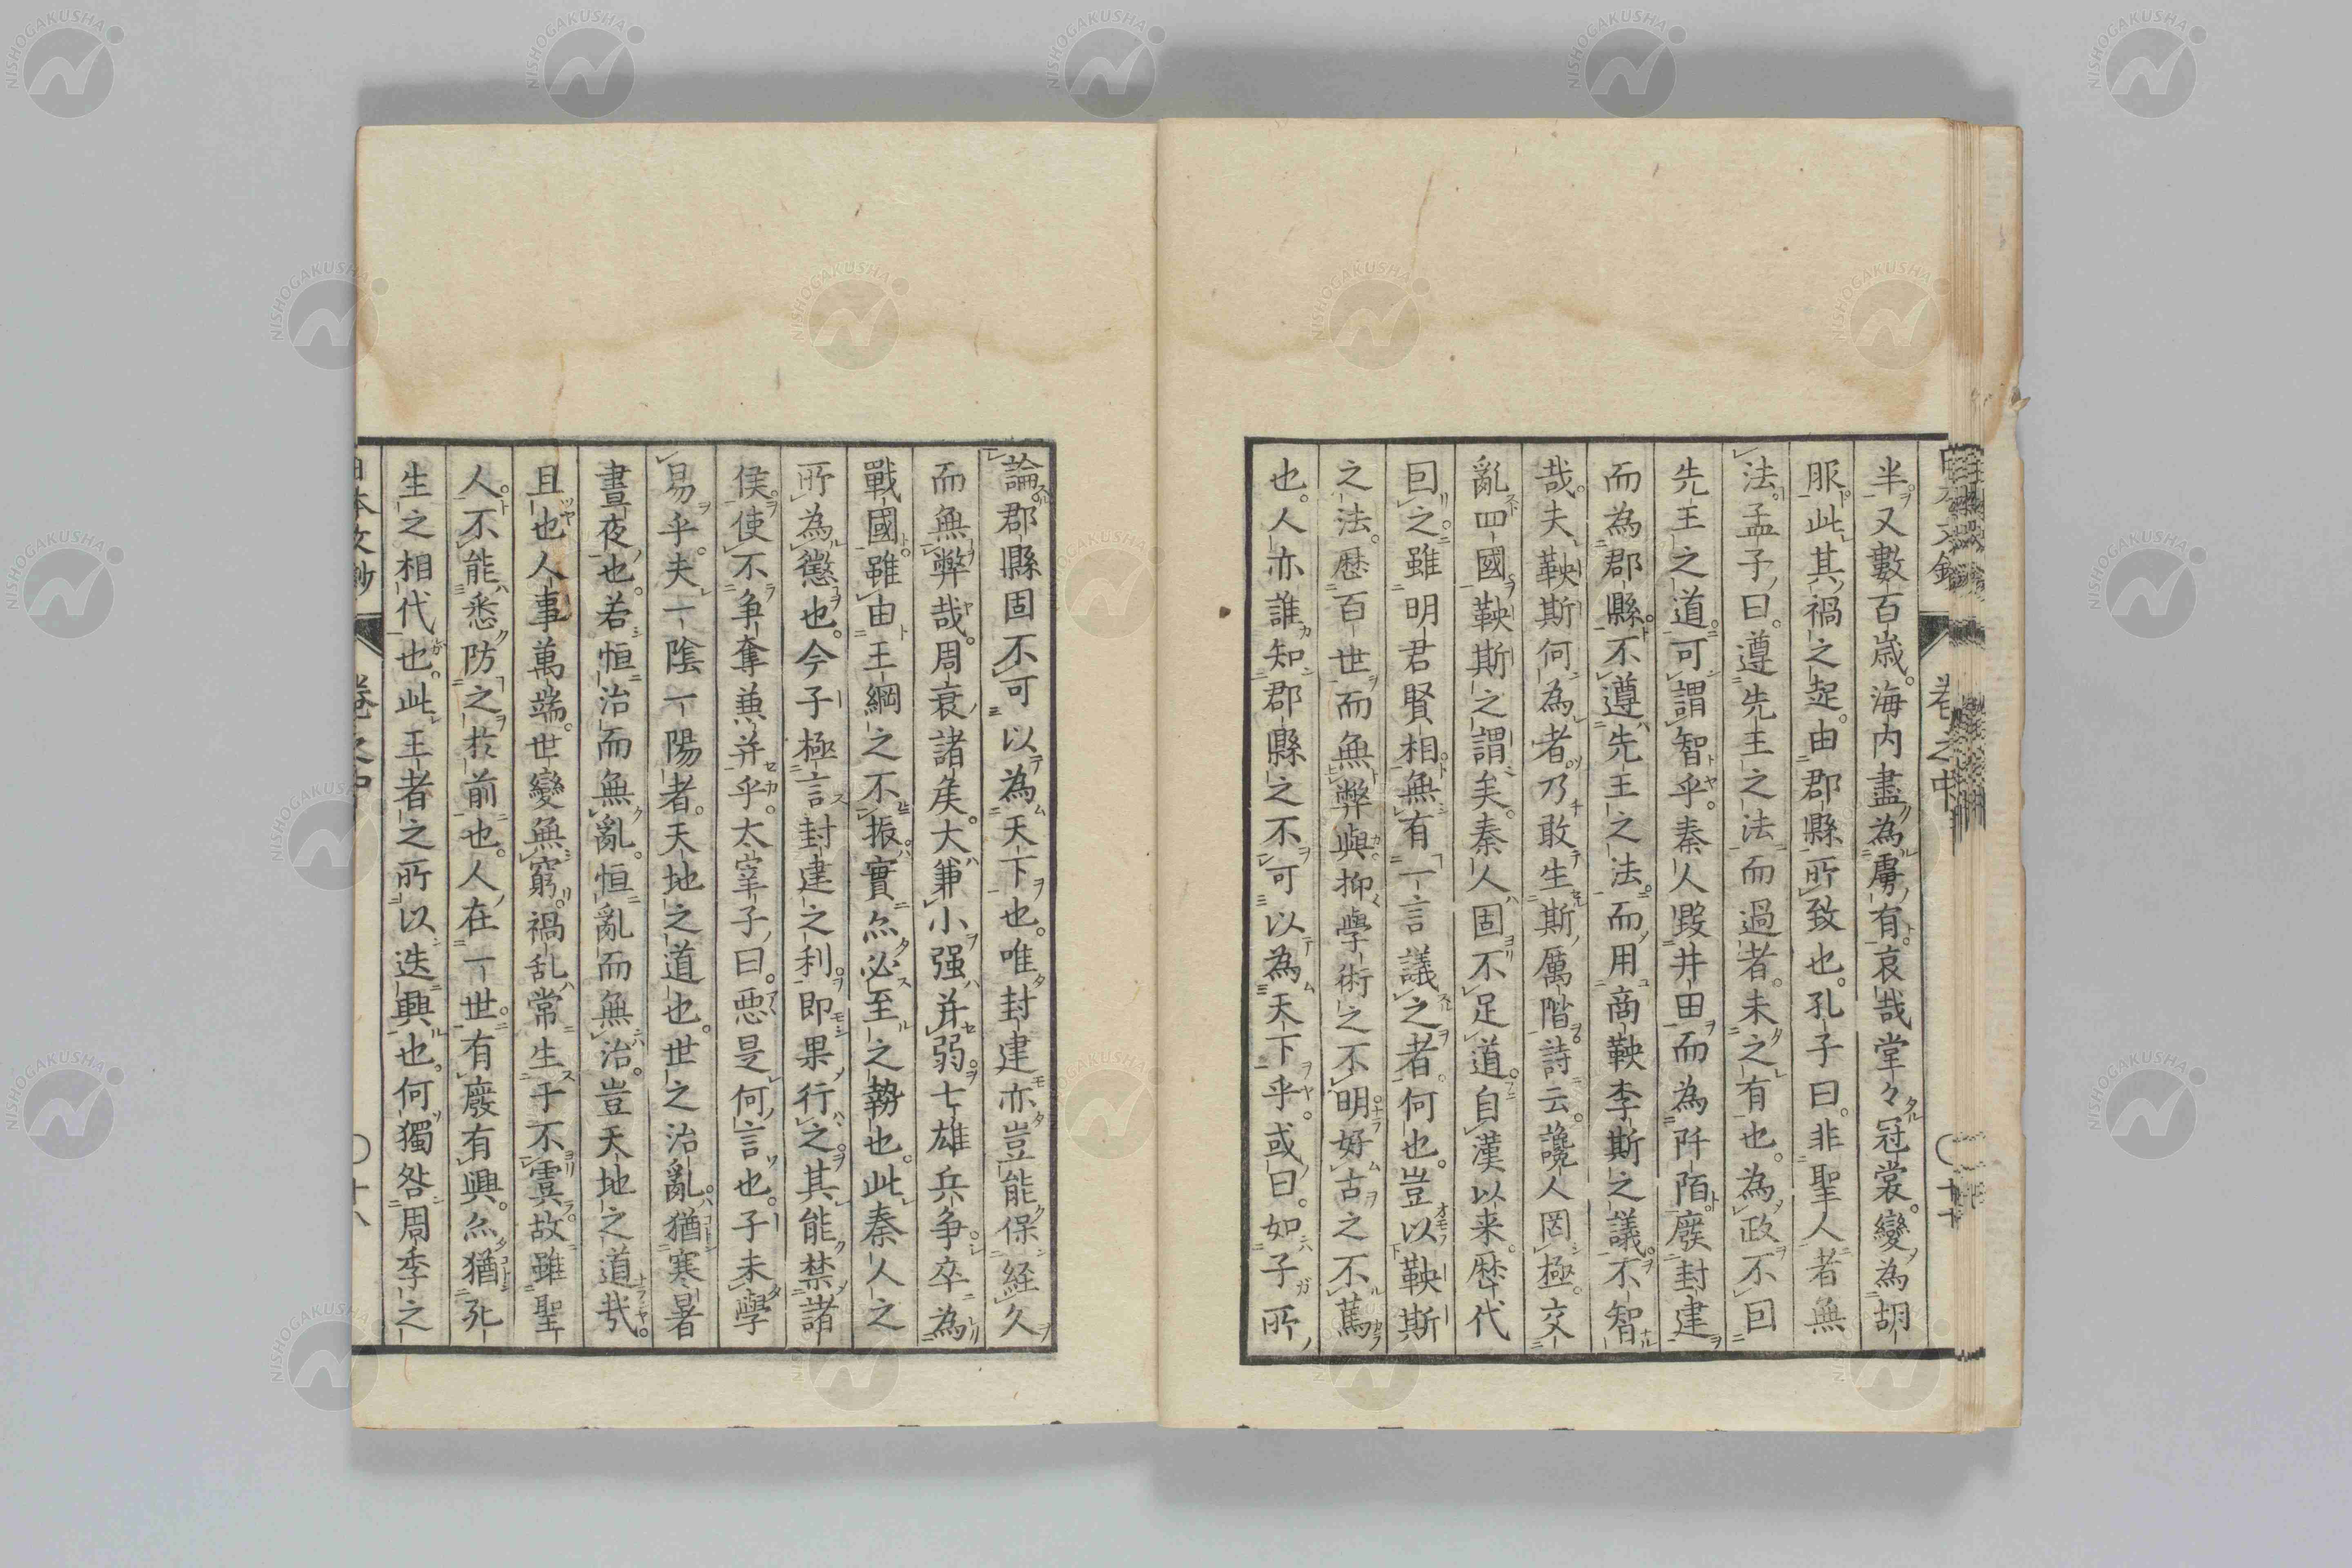 半又數百歳。海内盡為虜有哀哉堂々冠裳。變為胡
服此其禍之起。由郡縣所致也。孔子曰。非聖人者無
法。孟子曰。遵先王之法而過者。未之有也。為政不回
先王之道。可謂智乎。秦人毀井田而為阡陌廢封建
而為郡縣。不遵先王之法。而用商鞅李斯之議。不智
哉。夫鞅斯何為者。乃敢生斯厲階。詩云。讒人罔極。交
亂四國鞅斯之謂矣。秦人固不足道。自漢以来。歴代
回之。雖明君賢相無有一言議之者。何也。豈以鞅斯
之法。歴百世而無弊與。抑學術之不明。好古之不篤
也。人亦誰知郡縣之不可以為天下乎。或曰。如子所
論郡縣固不可以為天下也。唯封建亦豈能保経久
而無弊哉。周衰諸矦。大兼小强并弱。七雄兵争卒為
戰國。雖由王綱之不振。實亦必至之勢也。此秦人之
所為懲也。今子極言封建之利。即果行之。其能禁諸
侯。使不争奪兼并乎。太宰子曰。惡是何言也。子未學
易乎。夫一陰一陽者。天地之道也。世之治亂。猶寒暑
晝夜也。若恒治而無亂。恒亂而無治。豈天地之道哉。
且也人事萬端。世變無窮。禍乱常生于不虞。故雖聖
人。不能悉防之扵前也。人在一世。有廢有興。亦猶死
生之相代也。此王者之所以迭興也。何獨咎周季之
日本文鈔 卷之中 〇十八